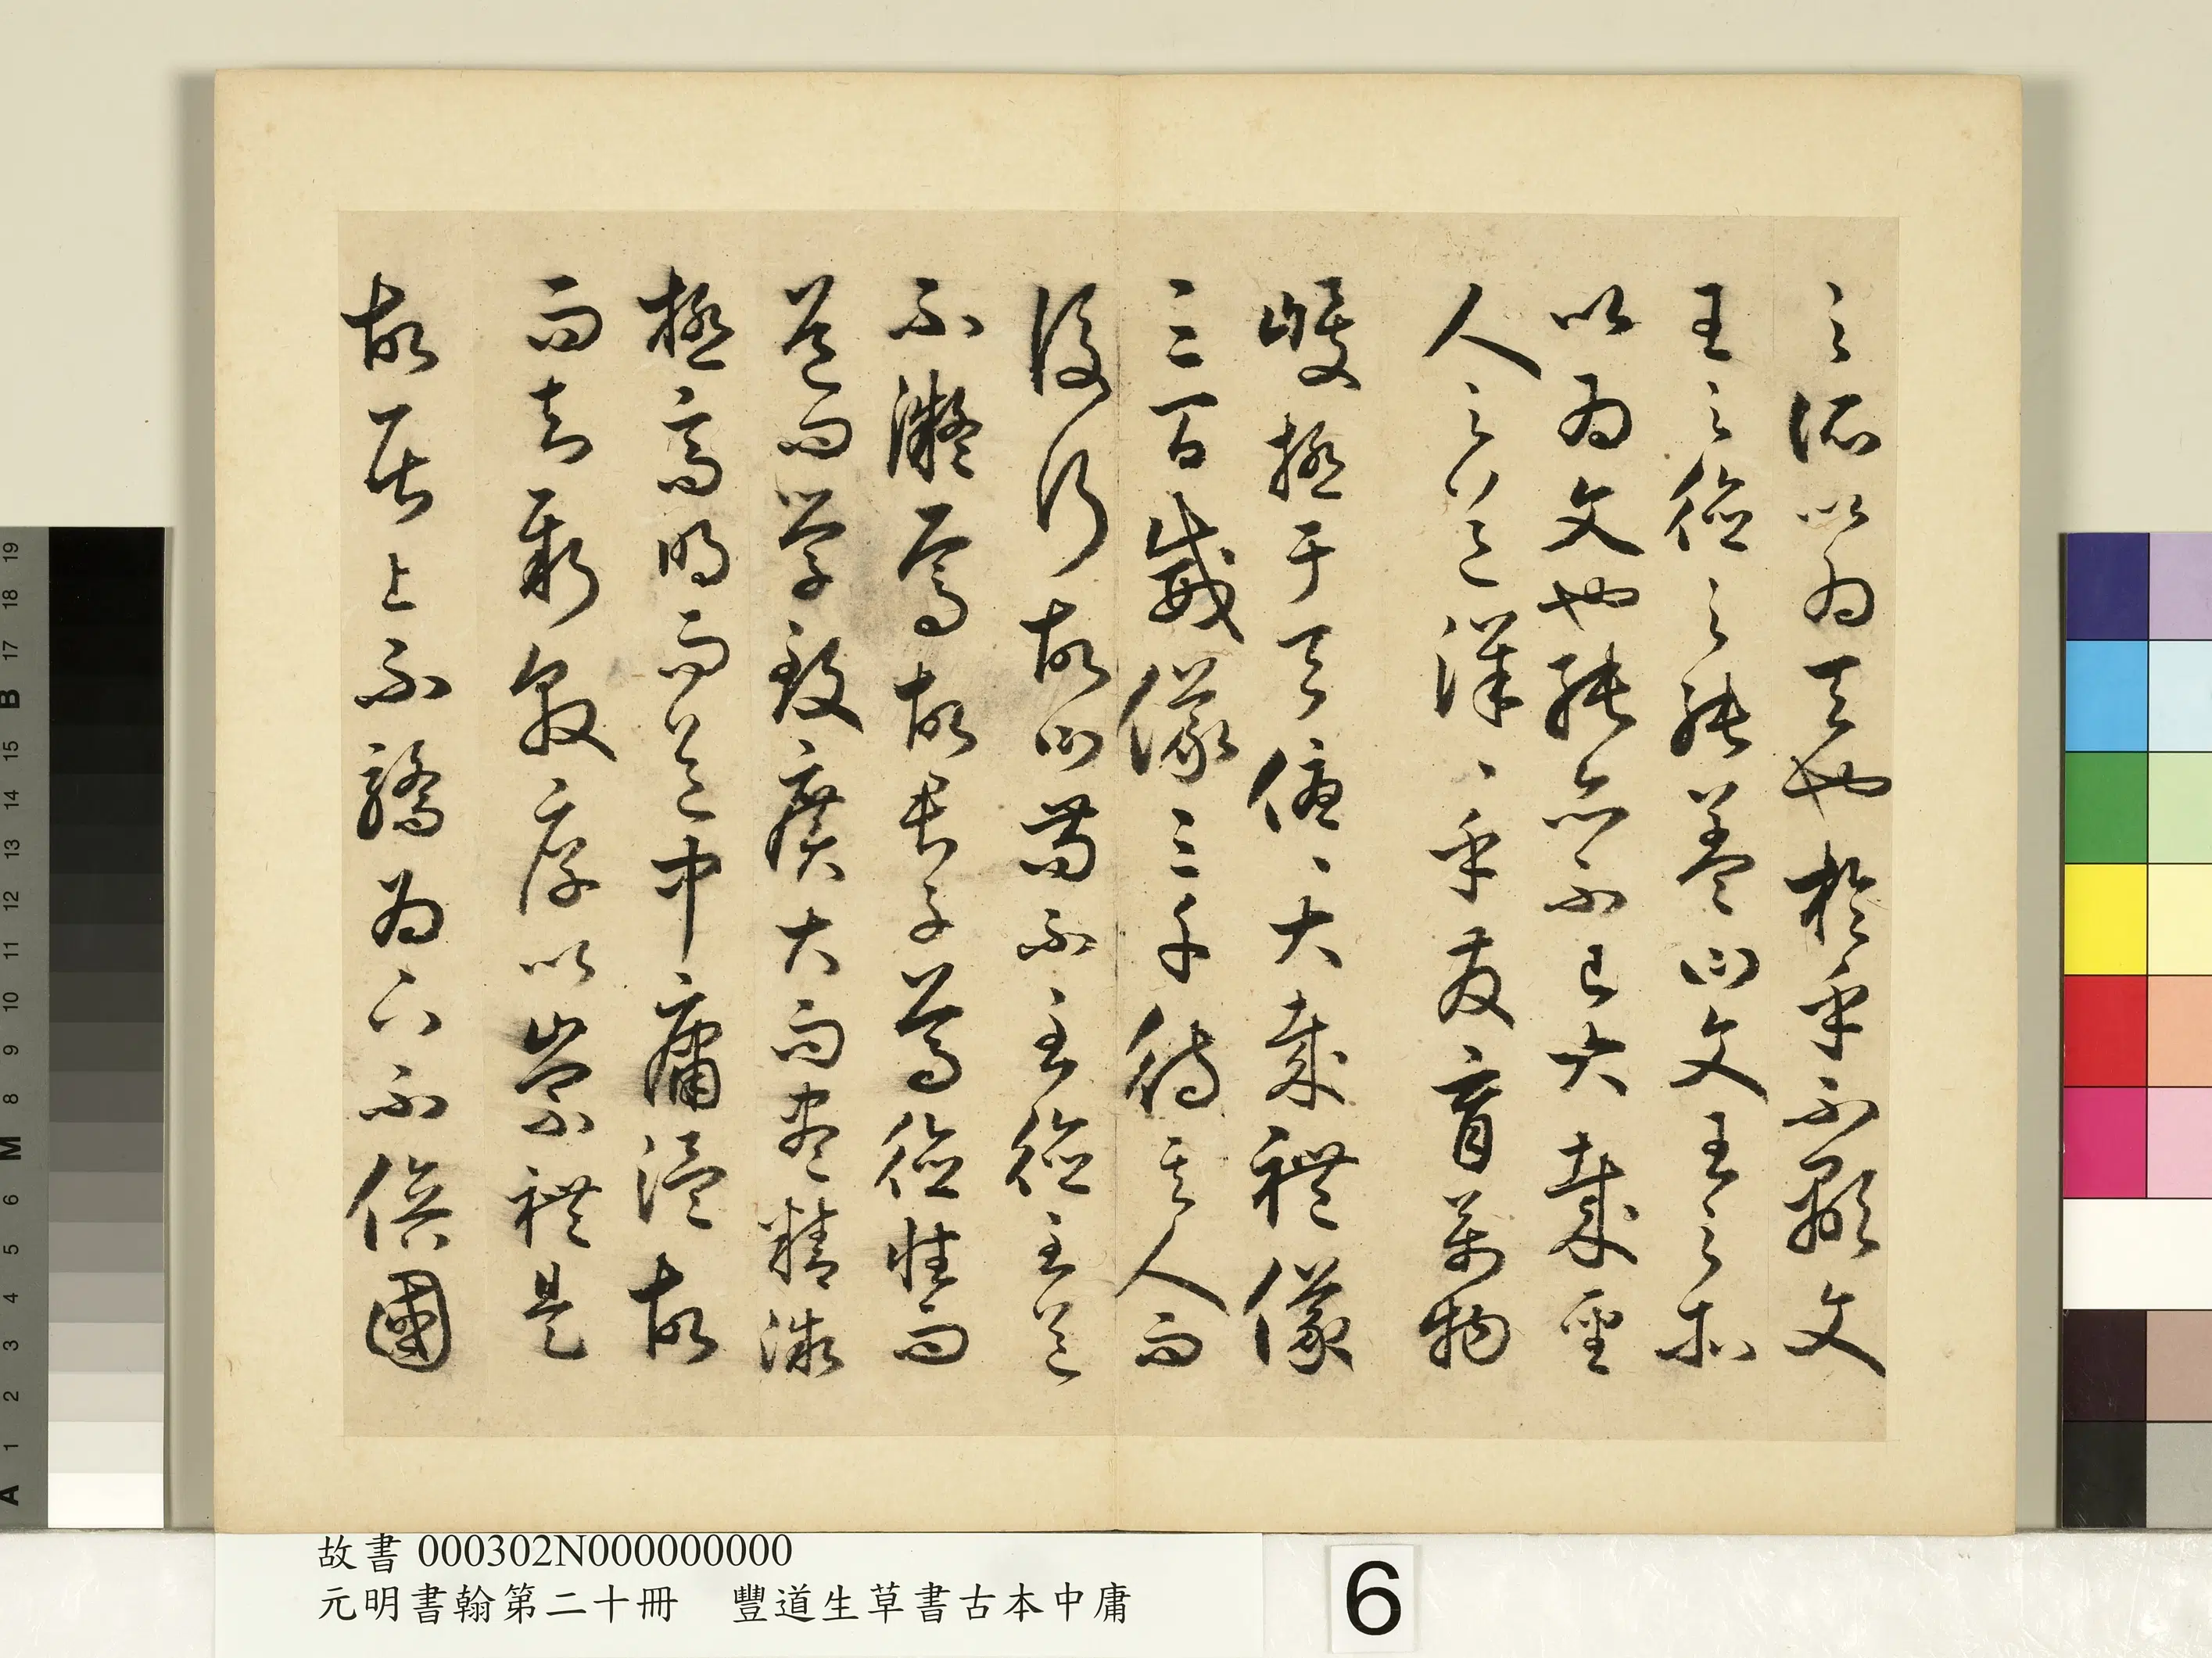 之所以為天也於乎不顯文
王之德之純蓋曰文王之所
以為文也純亦不已大哉聖
人之道洋、乎發育萬物
峻極于天優、大哉禮儀
三百威儀三千待其人而
後行故曰苟不至德至道
不凝焉故君子尊德性而
道問學致廣大而盡精微
極高明而道中庸溫故
而知新敦厚以崇禮是
故居上不驕為下不倍國
故書 000302N000000000
元明書翰第二十冊　豐道生草書古本中庸
6
A 1 2 3 4 5 6 M 8 9 10 11 12 13 14 15 B 17 18 19